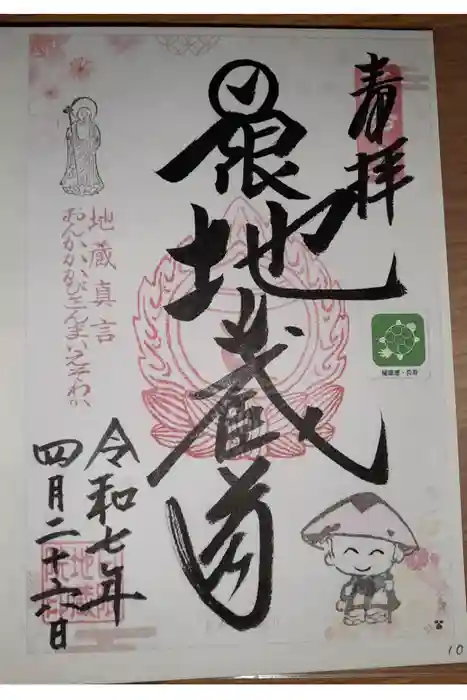 奉拝
日限地蔵尊
地蔵真言
おんかかかびさんまいえそわか
令和七年
四月二十六日
健康運・長寿
10